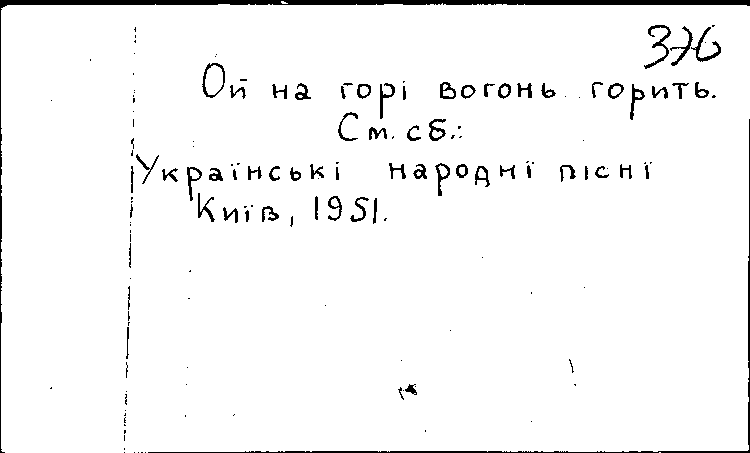 376
Ой на горі вогонь горить.
См. сб.:
Українські народнї піснї
Київ, 1951.